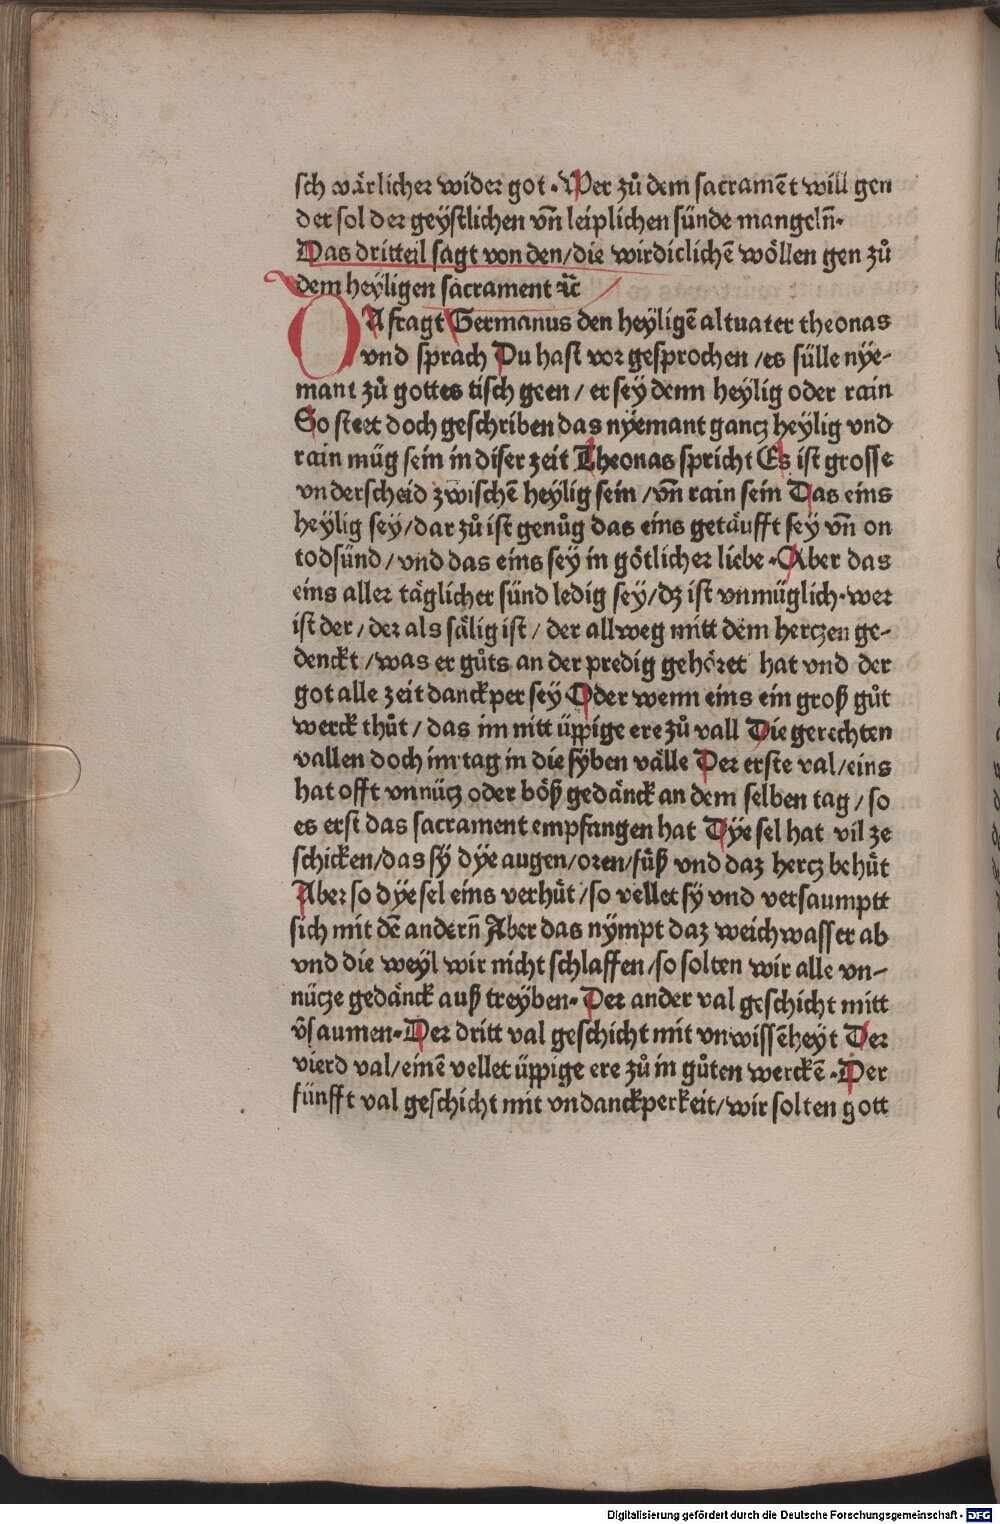 schwärlicher wider got · Wer zů dem sacramēt will gen
der sol der geÿstlichen vn̄ leiplichen sünde mangeln̄·
Das dritteil sagt von den/die wirdiclichē wöllen gen zů
dem heÿligen sacrament ꝛc̄
DA fragt Germanus den heÿligē altuater theonas
vnd sprach Du hast vor gesprochen /es sülle nÿe-
mant zů gottes tisch geen / er seÿ denn heÿlig oder rain
So steet doch geschriben das nÿemant gancz heÿlig vnd
rain müg sein in diser zeit Theonas spricht Es ist grosse
vnderscheid zwischē heÿlig sein /vn̄ rain sein Das eins
heÿlig seÿ/dar zů ist genůg das eins getäufft seÿ vn̄ on
todsünd/vnd das eins seÿ in götlicher liebe · Aber das
eins aller täglicher sünd ledig seÿ/dz ist vnmüglich·wer
ist der/der als sälig ist/ der allweg mitt dem herczen ge-
denckt /was er gůts an der predig gehöret hat vnd der
got alle zeit danckper seÿ Oder wenn eins ein groß gůt
werck thůt/das im nitt üppige ere zů vall Die gerechten
vallen doch im tag in die sÿben välle Der erste val/eins
hat offt vnnücz oder böß gedänck an dem selben tag/so
es erst das sacrament empfangen hat Dÿe sel hat vil ze
schicken/das sÿ dÿe augen/oren/füß vnd daz hercz behüt
Aber so dÿe sel eins verhüt/so vellet sÿ vnd versaumptt
sich mit dē andern̄ Aber das nÿmpt daz weichwasser ab
vnd die weÿl wir nicht schlaffen/so solten wir alle vn-
nücze gedänck auß treÿben· Der ander val geschicht mitt
v̄saumen·Der dritt val geschicht mit vnwissēheÿt Der
vierd val/einē vellet üppige ere zů in gůten werckē · Der
fünfft val geschicht mit vndanckperkeit/wir solten gott
Digitalisierung gefördert durch die Deutsche Forschungsgemeinschaft - DFG